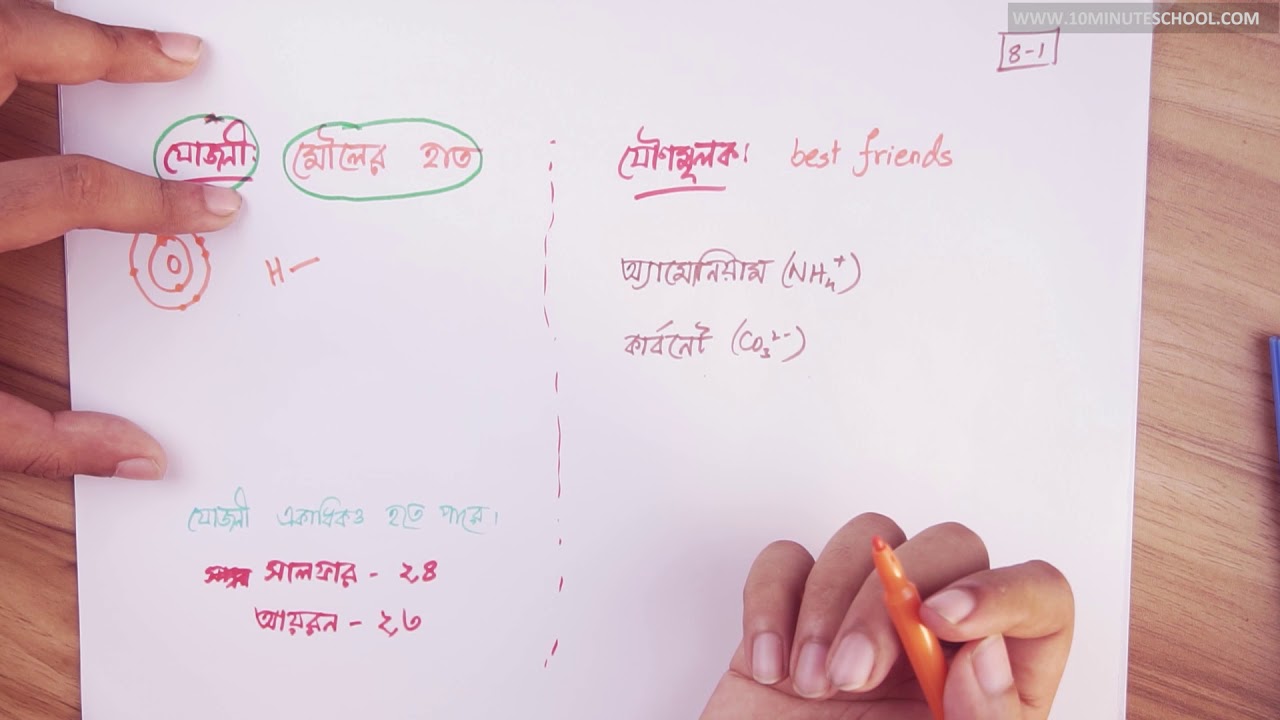 WWW.10MINUTESCHOOL.COM
8-1
যোজনী: মৌলের হাত
H—
যোজনী একাধিকও হতে পারে।
সালফার - ২,৪
আয়রন - ২,৩
যৌগমূলক: best friends
অ্যামোনিয়াম (NH₄⁺)
কার্বনেট (CO₃²⁻)